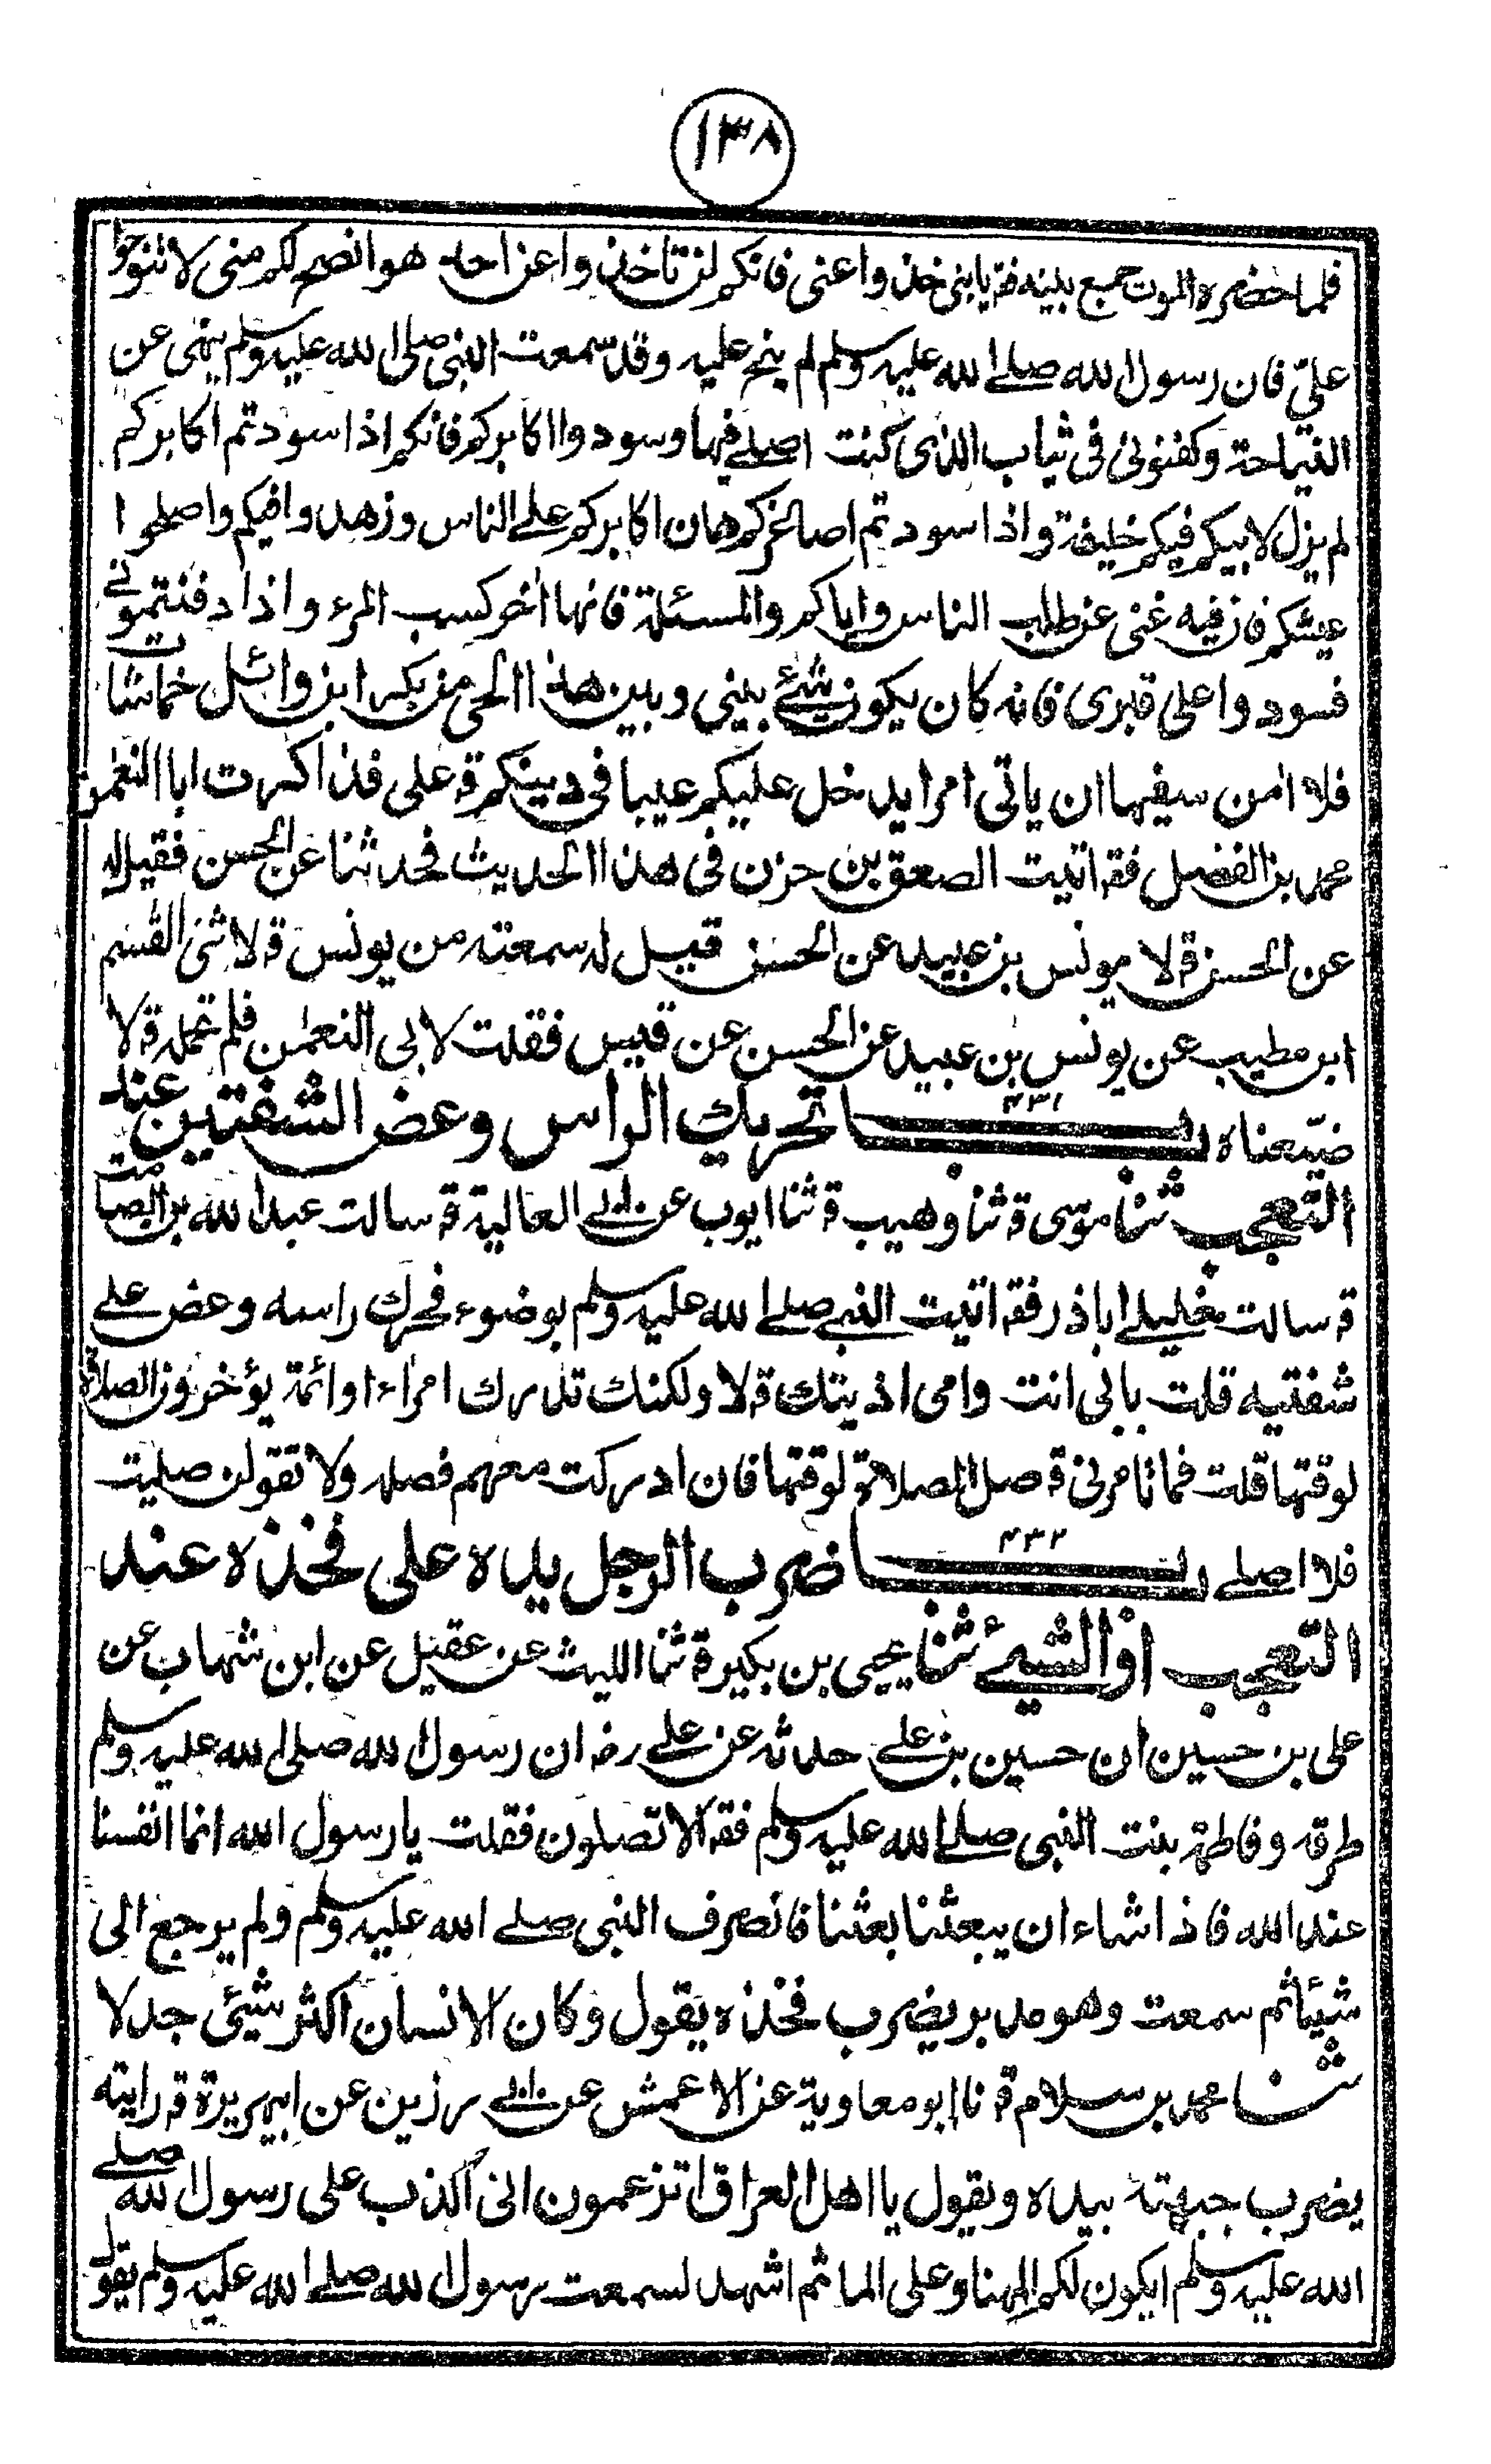 ١٣٨
فلما حضره الموت جمع بنيه فقه يابنى خذوا عنى فانكم لن تاخذوا عن احد هو انصح لكم منى لا تنوحوا
علىّ فان رسول الله صلے الله عليه وسلم لم ينح عليه وقد سمعت النبى صلى الله عليه وسلم ينهى عن
النياحة وكفنونى فى ثياب الذى كنت اصلے فيها وسودوا اكابركم فانكم اذا سودتم اكابركم
لم يزل لابيكم فيكم خليفة واذا سودتم اصاغركم هان اكابركم علے الناس وزهدوا فيكم واصلحوا
عيشكم فان فيه غنى عن طلب الناس واياكم والمسئلة فانها اخر كسب المرء واذا دفنتمونے
فسودوا على قبرى فانه كان يكون شئے بينى وبين هذا الحى من بكر ابن وائل خماشات
فلا امن سفيها ان ياتى امرا يدخل عليكم عيبا فى دينكم قه على فذاكرت ابا النعمٰن
محمد بن الفضل فقه اتيت الصعق بن حزن فى هذا الحديث فحدثنا عن الحسن فقيل له
عن الحسن قه لا يونس بن عبيد عن الحسن قيل له سمعته من يونس قه لا ثنى القٰسم
ابن مطيب عن يونس بن عبيد عن الحسن عن قيس فقلت لابى النعمٰن فلم تحمله قه لا
ضيّعناه بــاب ٤٣١ تحريك الراس وعض الشفتين عند
التعجب ثنا موسى قه ثنا وهيب قه ثنا ايوب عن ابى العالية قه سالت عبد الله بن الصامت
قه سالت خليلے اباذر فقه اتيت النبے صلے الله عليه وسلم بوضوء فحرك راسه وعض علے
شفتيه قلت بابى انت وامى اذيتك قه لا ولكنك تدرك امراء او ائمة يؤخرون الصلاة
لوقتها قلت فما تامرنى قه صل الصلاة لوقتها فان ادركت معهم فصله ولا تقولن صليت
فلا اصلے بــاب ٤٣٢ ضرب الرجل يده على فخذه عند
التعجب او الشئے ثنا يحيى بن بكير قه ثنا الليث عن عقيل عن ابن شهاب عن
على بن حسين ان حسين بن علے حدثه عن علے رضه ان رسول الله صلى الله عليه وسلم
طرقه وفاطمة بنت النبى صلے الله عليه وسلم فقه الا تصلون فقلت يا رسول الله انما انفسنا
عند الله فاذا شاء ان يبعثنا بعثنا فانصرف النبى صلے الله عليه وسلم ولم يرجع الى
شيئا ثم سمعت وهو مدبر يضرب فخذه يقول وكان الانسان اكثر شيئى جدلا
ثنا محمد بن سلام قه نا ابو معاوية عن الاعمش عن ابى رزين عن ابى هريرة قه رايته
يضرب جبهته بيده ويقول يا اهل العراق اتزعمون انى اكذب على رسول الله صلے
الله عليه وسلم ايكون لكم المهنا وعلى الماثم اشهد لسمعت رسول الله صلے الله عليه وسلم يقول